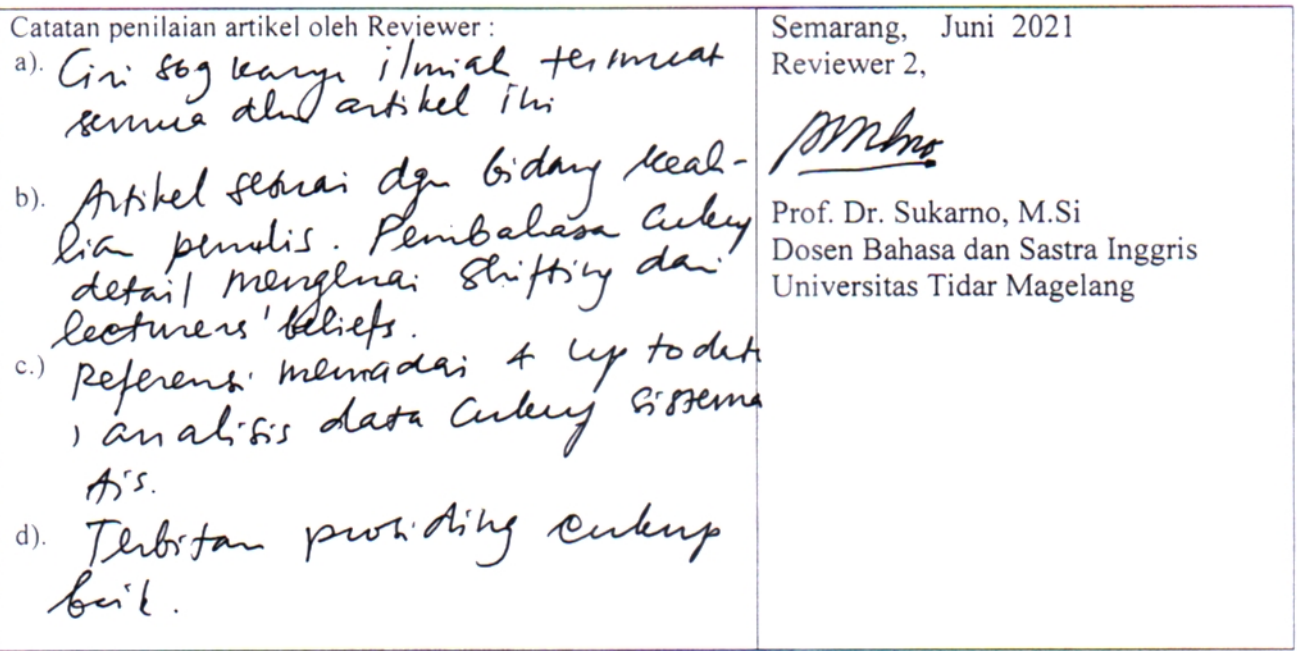 Catatan penilaian artikel oleh Reviewer :
a). Ciri sbg karya ilmiah termuat
semua dlm artikel ini
b). Artikel sesuai dgn bidang keah-
lian penulis. Pembahasa cukup
detail mengenai shifting dari
lecturers' beliefs.
c.) Referensi memadai + up to date
, analisis data cukup sistema
tis.
d). Terbitan prosiding cukup
baik.
Semarang, Juni 2021
Reviewer 2,
Prof. Dr. Sukarno, M.Si
Dosen Bahasa dan Sastra Inggris
Universitas Tidar Magelang